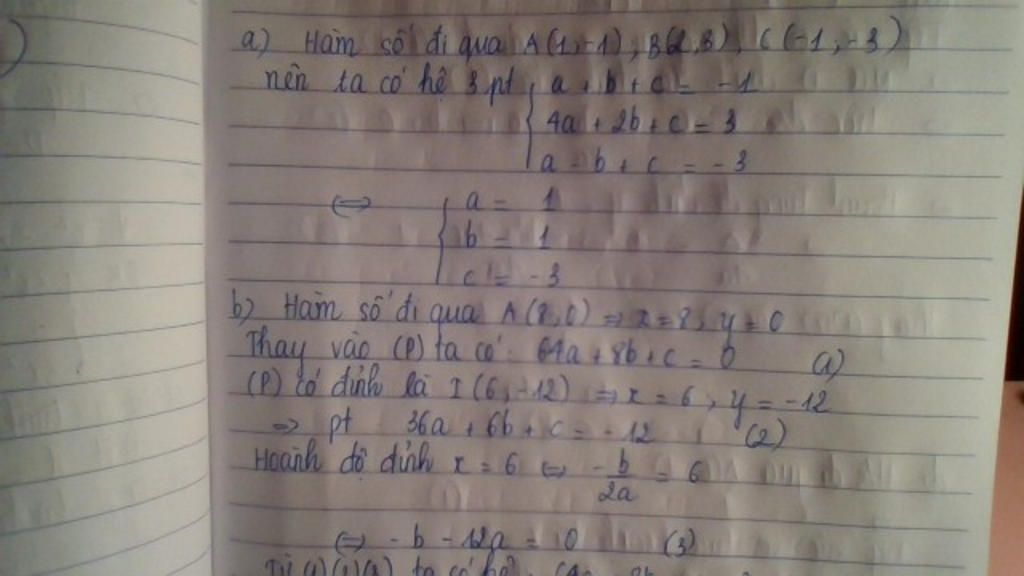 a) Hàm số đi qua A(1,-1), B(2,3), C(-1,-3)
nên ta có hệ 3 pt { a + b + c = -1
4a + 2b + c = 3
a - b + c = -3
⇔ { a = 1
b = 1
c = -3
b) Hàm số đi qua A(8,0) ⇒ x = 8, y = 0
Thay vào (P) ta có: 64a + 8b + c = 0 (1)
(P) có đỉnh là I(6,-12) ⇒ x = 6, y = -12
⇒ pt 36a + 6b + c = -12 (2)
Hoành độ đỉnh x = 6 ⇔ -b/2a = 6
⇔ -b - 12a = 0 (3)
Từ (1)(2)(3) ta có hệ